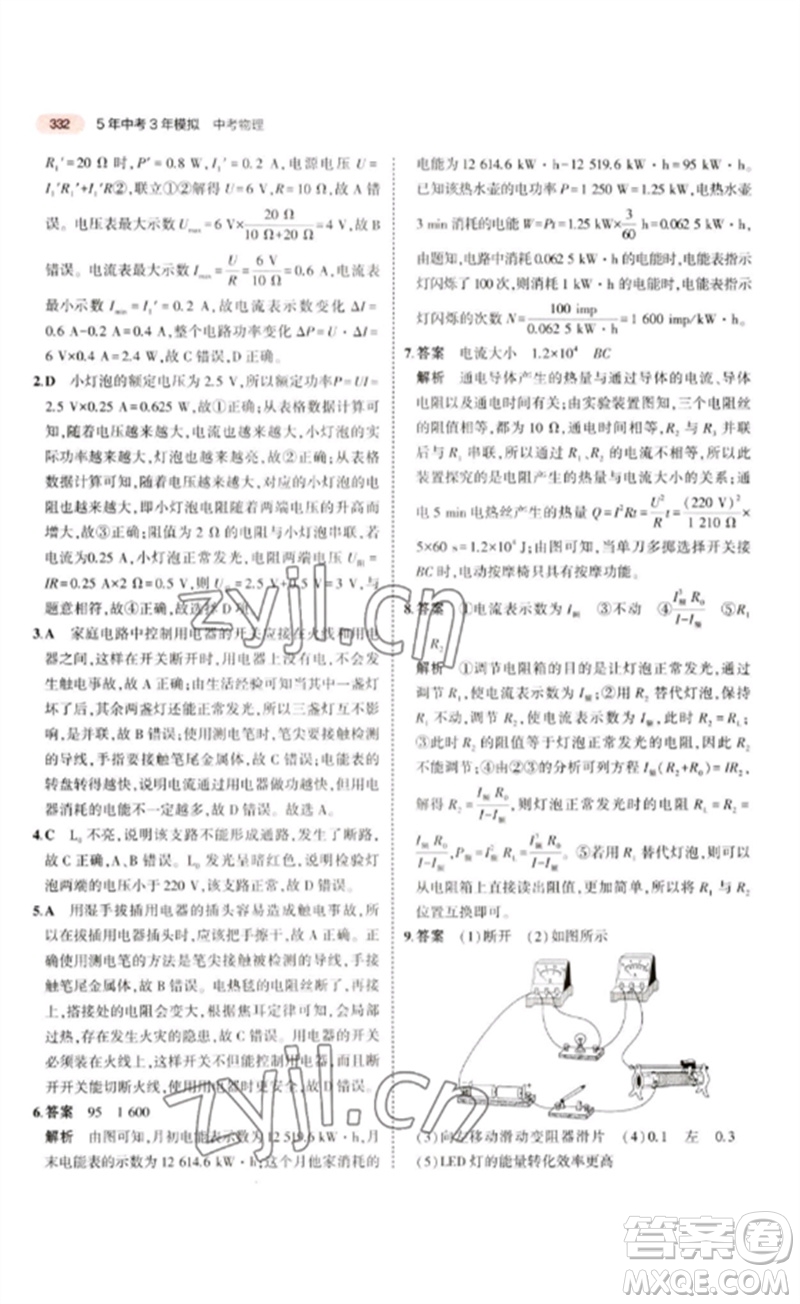 332 5年中考3年模拟 中考物理
R₁′=20 Ω 时，P′=0.8 W，I₁′=0.2 A，电源电压 U=
I₁′R₁′+I₁′R②，联立①②解得 U=6 V，R=10 Ω，故 A 错
误。电压表最大示数 Umax=6 V×20 Ω/(10 Ω+20 Ω)=4 V，故 B
错误。电流表最大示数 Imax=U/R=6 V/10 Ω=0.6 A，电流表
最小示数 Imin=I₁′=0.2 A，故电流表示数变化 ΔI=
0.6 A-0.2 A=0.4 A，整个电路功率变化 ΔP=U·ΔI=
6 V×0.4 A=2.4 W，故 C 错误，D 正确。
2.D 小灯泡的额定电压为 2.5 V，所以额定功率 P=UI=
2.5 V×0.25 A=0.625 W，故①正确；从表格数据计算可
知，随着电压越来越大，电流也越来越大，小灯泡的实
际功率越来越大，灯泡也越来越亮，故②正确；从表格
数据计算可知，随着电压越来越大，小灯泡的灯丝的电
阻也越来越大，即小灯泡的电阻随着两端电压的升高而
增大，故③正确；阻值为 2 Ω 的电阻与小灯泡串联，若
电流为0.25 A，小灯泡正常发光，电阻两端电压 U阻=
IR=0.25 A×2 Ω=0.5 V，则 U总=2.5 V+0.5 V=3 V，与
题意相符，故④正确。故选 D。
3.A 家庭电路中控制用电器的开关应接在火线和用电
器之间，这样在开关断开时，用电器上没有电，不会发
生触电事故，故 A 正确；由生活经验可知当其中一盏灯
坏了后，其余两盏灯还能正常发光，则三盏灯互不影
响，是并联的，故 B 错误；使用测电笔时，笔尖要接触被
检测的导线，手指要接触笔尾金属体，故 C 错误；电能表的
转盘转得越快，说明用电器做功越快，但用电
器消耗的电能不一定越大，故 D 错误。故选 A。
4.C L₀ 不亮，说明该支路不能形成通路，发生了断路，
故 C 正确，A、B 错误。L₀ 发光呈暗红色，说明检验灯
泡两端的电压小于 220 V，该支路正常，故 D 错误。
5.A 用湿手拔插用电器的插头容易造成触电事故，所
以在拔插用电器插头时，应该把手擦干，故 A 正确。
使用测电笔的方法是笔尖接触被检测的导线，手接触
笔尾金属体，故 B 错误。电热毯的电阻丝断了，再接
起来使用，接触处的电阻会变大，根据焦耳定律可知，会局部
过热，存在发生火灾的隐患，故 C 错误。用电器的开关
必须装在火线上，这样开关闭合时能使用电器工作，断
开开关能切断火线，故 D 错误。
6.答案 95 1 600
解析 由图可知，月初电能表示数为 12 519.6 kW·h，月
末电能表的示数为 12 614.6 kW·h，这个月他家消耗的
电能为 12 614.6 kW·h-12 519.6 kW·h=95 kW·h。
已知该热水壶的电功率 P=1 250 W=1.25 kW，电热水壶
3 min 消耗的电能 W=Pt=1.25 kW×3/60 h=0.062 5 kW·h，
由题知，电路中消耗 0.062 5 kW·h的电能时，电能表指示
灯闪烁了 100 次，则消耗 1 kW·h的电能时，电能表指示
灯闪烁的次数 N=100 imp/0.062 5 kW·h=1 600 imp/(kW·h)。
7.答案 电流大小 1.2×10⁴ BC
解析 通电导体产生的热量与通过导体的电流、导体
电阻以及通电时间有关；由实验装置图知，三个电阻丝
的阻值相等，都为 10 Ω，通电时间相等，R₂ 与 R₃ 并联
后与 R₁ 串联，所以通过 R₁ 与 R₂ 的电流不相等，所以此
装置探究的是电阻产生的热量与电流大小的关系；通
电 5 min 电热丝产生的热量 Q=I²Rt=U²/R t=(220 V)²/1 210 Ω×
5×60 s=1.2×10⁴ J；由图可知，当单刀多掷开关接
BC 时，电动按摩椅只具有按摩功能。
8.答案 ①电流表示数为 I额 ③不动 ④I额²R₀/(I-I额) ⑤R₁
R₂
解析 ①调节电阻箱的目的是让灯泡正常发光，通过
调节 R₁，使电流表示数为 I额；②用 R₂ 替代灯泡，保持
R₁ 不动，调节 R₂，使电流表示数仍为 I额，此时 R₂
的阻值等于灯泡正常发光的电阻；③保持 R₁、R₂
不动；④由②③的分析可列方程 I额(R₂+R₀)=IR₂，
解得 R₂=I额R₀/(I-I额)，则灯泡正常发光时的电阻 RL=R₂=
I额R₀/(I-I额)，P额=I额²RL=I额³R₀/(I-I额)。⑤若用 R₁ 替代灯泡，则可
以从电阻箱上直接读出阻值，更加简单，所以将 R₁ 与 R₂
位置互换即可。
9.答案 (1)断开 (2)如图所示
(3)向左移动滑动变阻器滑片 (4)0.1 左 0.3
(5)LED 灯的能量转化效率更高
zyjl.cn
zyjl.cn
答案圈
MXQE.COM